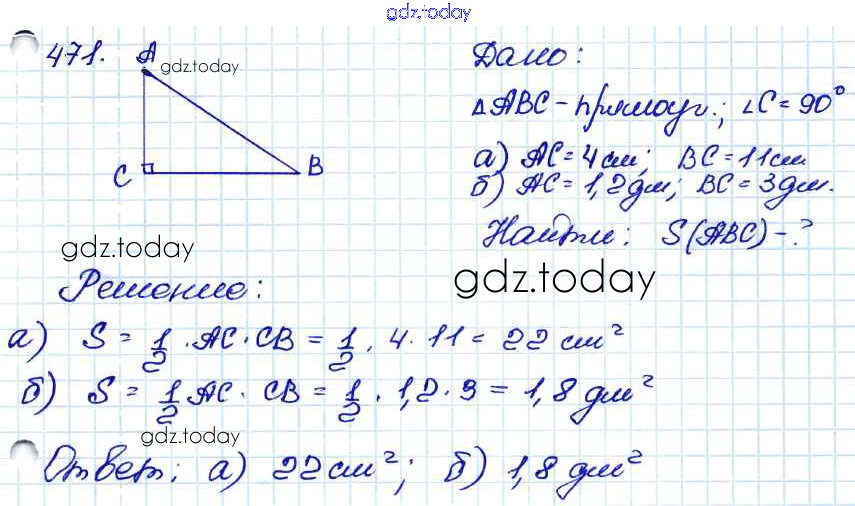 gdz.today
471.
A
gdz.today
C
B
Дано:
△ABC - прямоуг.; ∠C = 90°
а) AC = 4 см; BC = 11 см
б) AC = 1,2 дм; BC = 3 дм.
Найти: S(ABC) - ?
gdz.today
gdz.today
Решение:
а) S = 1/2 · AC · CB = 1/2 · 4 · 11 = 22 см²
б) S = 1/2 AC · CB = 1/2 · 1,2 · 3 = 1,8 дм²
gdz.today
Ответ: а) 22 см²; б) 1,8 дм²